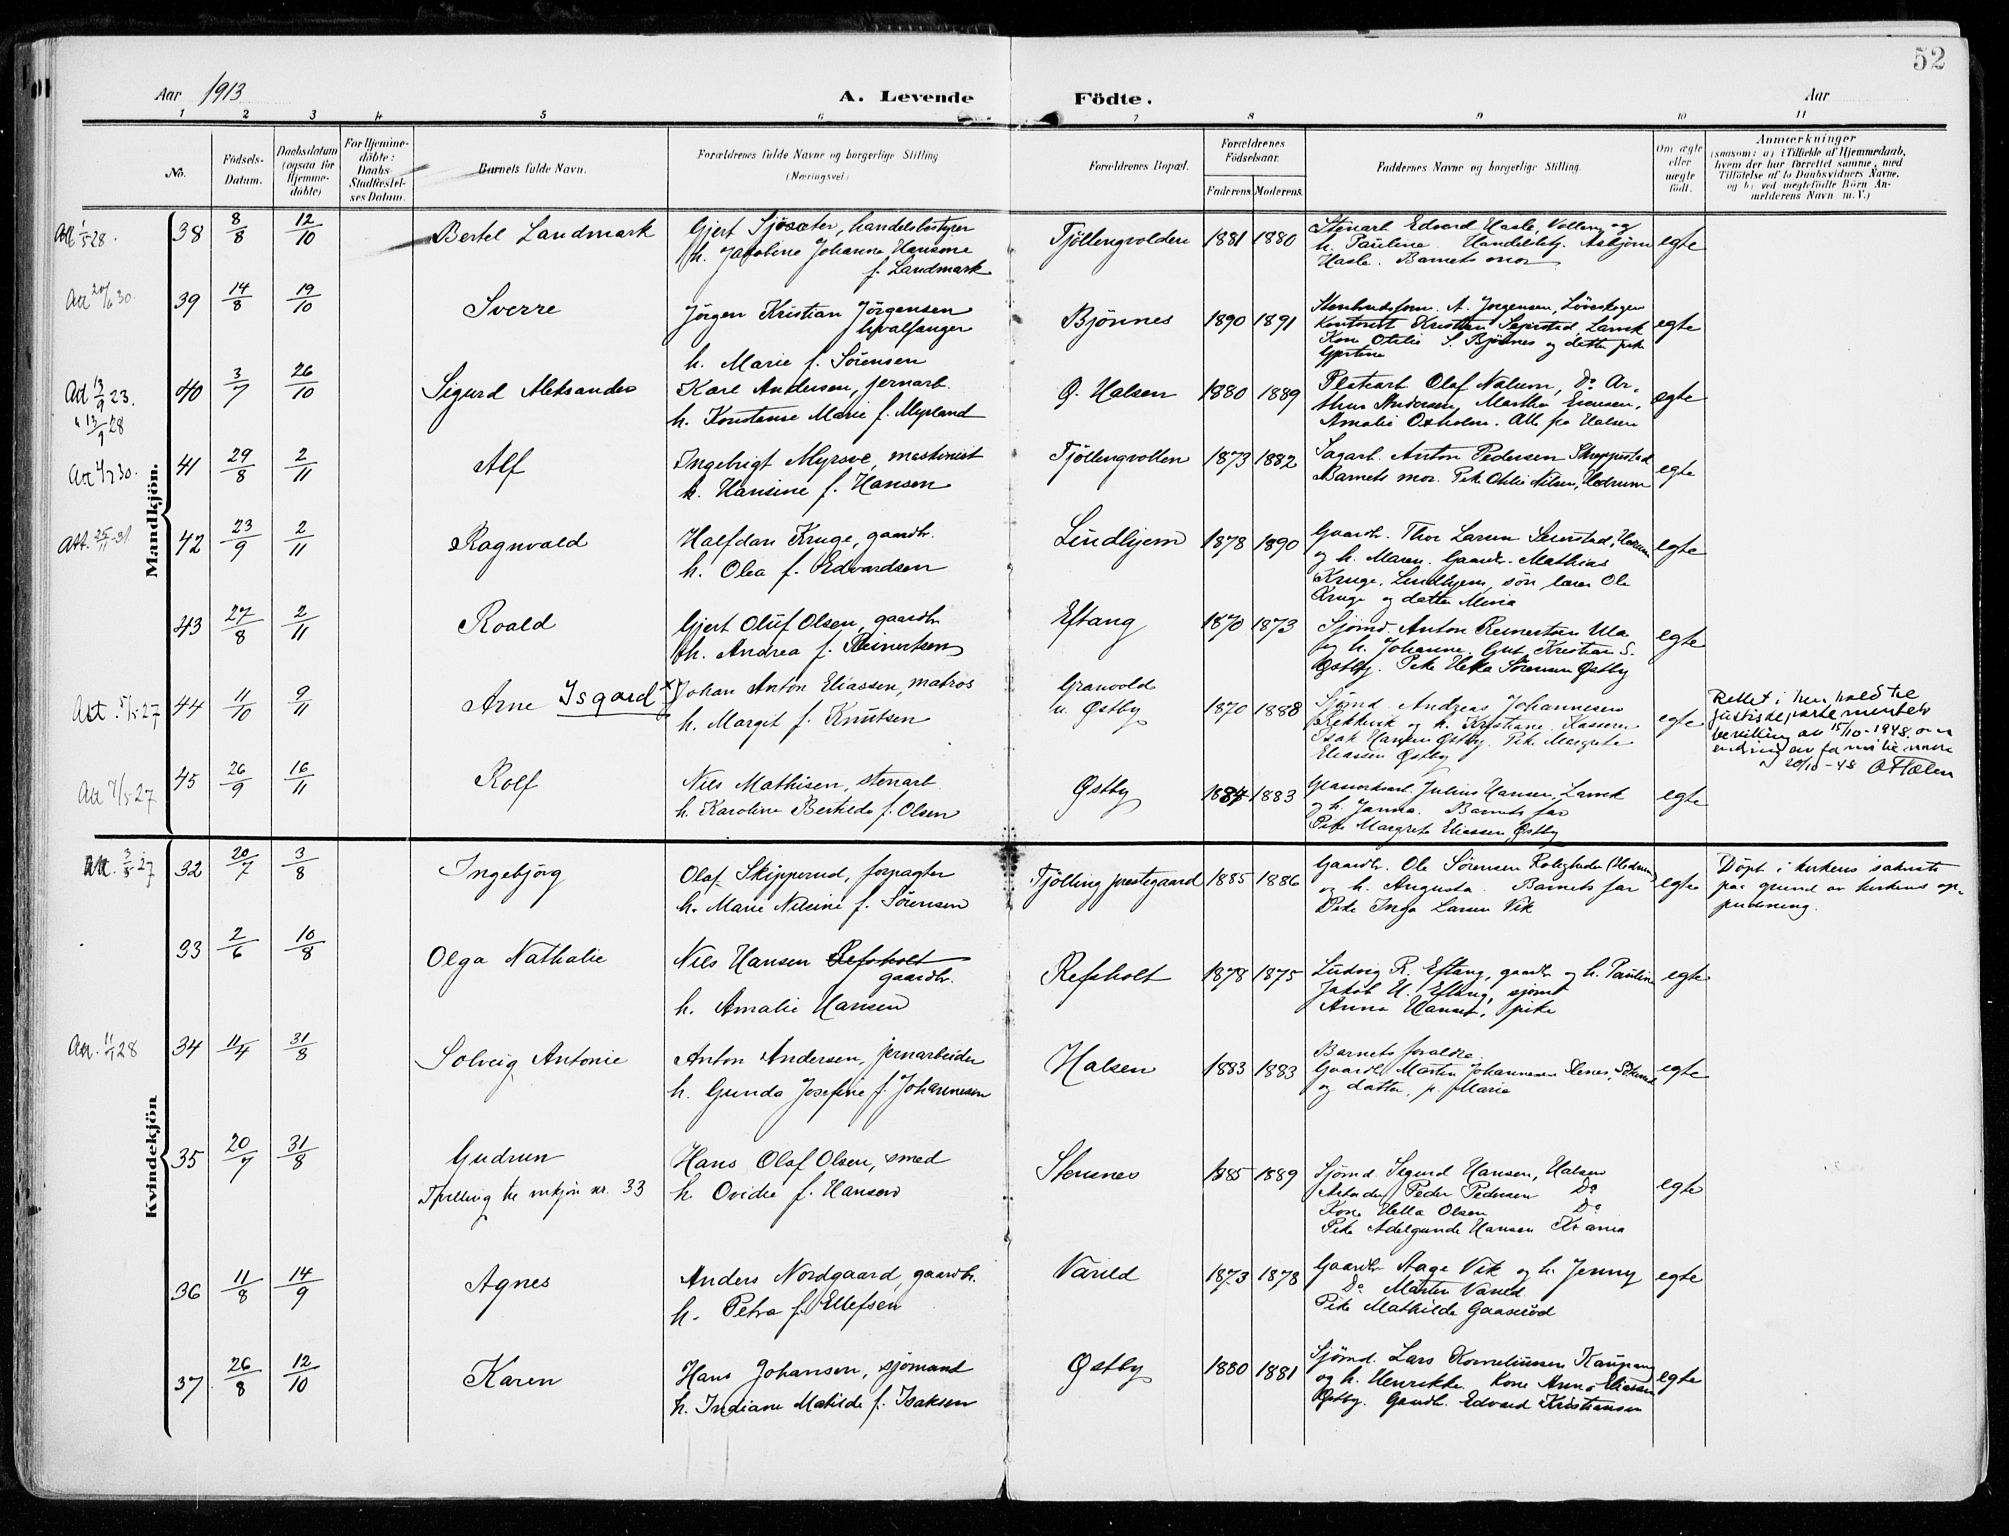 52
Aar 1913
A. Levende Födte.
Aar
1 2 3 4 5 6 7 8 9 10 11
No.
Födsels-Datum.
Daabsdatum (ogsaa for Hjemme-döbte)
For Hjemme-döbte: Daabs-Stadfæstel-ses Datum.
Barnets fulde Navn.
Forældrenes fulde Navne og borgerlige Stilling (Næringsvei.)
Forældrenes Bopæl.
Forældrenes Födselsaar.
Faderens. Moderens.
Faddernes Navne og borgerlige Stilling.
Om ægte eller uægte födt.
Anmærkninger
(saasom: a) i Tilfælde af Hjemmedaab, hvem der har forrettet samme, med Tilföielse af to Daabsvidners Navne. og b) ved uægtefödte Börn An-melderens Navn m. V.)
Mandkjön.
38 8/8 12/10 Bertel Landmark
Gjert Sjösæter, handelsbestyrer
h. Jakobine Johanne Hansine
f. Landmark
Tjöllingvolden 1881 1880
Stenarb. Edvard Hasle, Vollen, og
h. Pauline. Handelsbetj. Asbjörn
Hasle. Barnets mor
egte
39 14/8 19/10 Sverre
Jörgen Kristian Jörgensen
hvalfanger
h. Marie f. Sörensen
Bjönnes 1890 1891
A. Jorgensen, Löveskogen
Kristian Seierstad, Larvik
Kone Otilie S. Bjönnes og datter pike
Gjertine
egte
Att 13/9 23.
" 13/9 28
40 3/7 26/10 Sigurd Aleksander
Karl Andersen, jernarb.
h. Konstanse Marie f. Myrland
Ö. Halsen 1880 1889
Platearb. Olaf Nalum, Do Ar-
thur Andersen, Martha Enersen,
Amalie Oxholm. Alle fra Halsen
egte
41 29/8 2/11 Alf
Ingebrigt Myrsve, maskinist
h. Hansine f. Hansen
Tjöllingvollen 1873 1882
Sagarb. Anton Pedersen Skreppestad
Barnets mor. Pike Otilie Nilsen, Hedrum
egte
Att. 25/11 - 31.
42 23/9 2/11 Ragnvald
Halfdan Kruge, gaardbr.
h. Olea f. Edvardsen
Lindhjem 1878 1890
Gaardbr. Thor Larsen Seierstad, Hedrum
og h. Maren. Gaardbr. Mathias
Kruge, Lindhjem, sön lærer Ole
Kruge og datter Maria
egte
43 27/8 2/11 Roald
Gjert Oluf Olsen, gaardbr
h. Andrea f. Reinertsen
Eftang 1870 1873
Sjömd. Anton Reinertsen Ula
og h. Johanne. Gut Kristian S.
Östby. Pike Helka Sörensen Östby
egte
Att. 5/5-27
44 11/10 9/11 Arne Isgard x)
Johan Anton Eliassen, matros
h. Margit f. Knutsen
Granvold
u. Östby 1870 1888
Sjömd. Andreas Johannesen
Rekkevik og h. Kristiane. Kasserer
Isak Hansen Östby. Pike Margrete
Eliassen Östby
egte
Rettet i henhold til
justisdepartementets
bevilling av 15/10-1948 om
endring av familienavn
20/10-48
Att 7/5-27
45 26/9 16/11 Rolf
Nils Mathisen, stenarb.
h. Karoline Bertilde f. Olsen
Östby 1884 1883
Glasverksarb. Julius Hansen, Larvik
og h. Janna. Barnets far
Pike Margrete Eliassen, Östby
egte
Kvindekjön
Att. 3/5-27
32 20/7 3/8 Ingebjörg
Olaf Skipperud, forpagter
h. Marie Nilsine f. Sörensen
Tjölling prestegaard 1885 1886
Gaardbr. Ole Sörensen Roligheden (Hedrum)
og h. Augusta. Barnets far
Pike Inga Larsen Vik
egte
Döpt i kirkens sakristi
paa grund av kirkens op-
pudsning.
33 2/6 10/8 Olga Nathalie
Nils Hansen Refsholt
gaardbr.
h. Amalie Hansen
Refsholt 1878 1875
Ludvig R. Eftang, gaardbr og h. Pauline
Jakob H. Eftang, sjömd
Anna Hansen, pike
egte
34 11/4 31/8 Solveig Antonie
Anton Andersen, jernarbeider
h. Gunda Josefine f. Johannesen
Halsen 1883 1883
Barnets forældre.
Gaardbr. Martin Johannesen
og datter, p. Maria
egte
35 20/7 31/8 Gudrun
Tvilling til mkjön nr. 33
Hans Olaf Olsen, smed
h. Ovidie f. Hansen
Stensnes 1885 1889
Sjömd. Sigurd Hansen, Halsen
Arbeider Peder Pedersen Do
Kone Hella Olsen Do
Pike Adelgunde Hansen Kr.ania
egte
36 11/8 14/9 Agnes
Anders Nordgaard, gaardbr.
h. Petra f. Ellefsen
Varild 1873 1878
Gaardbr Aage Vik og h. Jenny
Do Martin Varild
Pike Mathilde Gaaseröd
egte
37 26/8 12/10 Karen
Hans Johansen, sjömand
h. Indiane Matilde f. Isaksen
Östby 1880 1881
Sjömd. Lars Korneliussen Kaupang
og h. Henrikke. Kone Anna Eliassen
Östby. Gaardbr. Edvard Kristiansen
egte